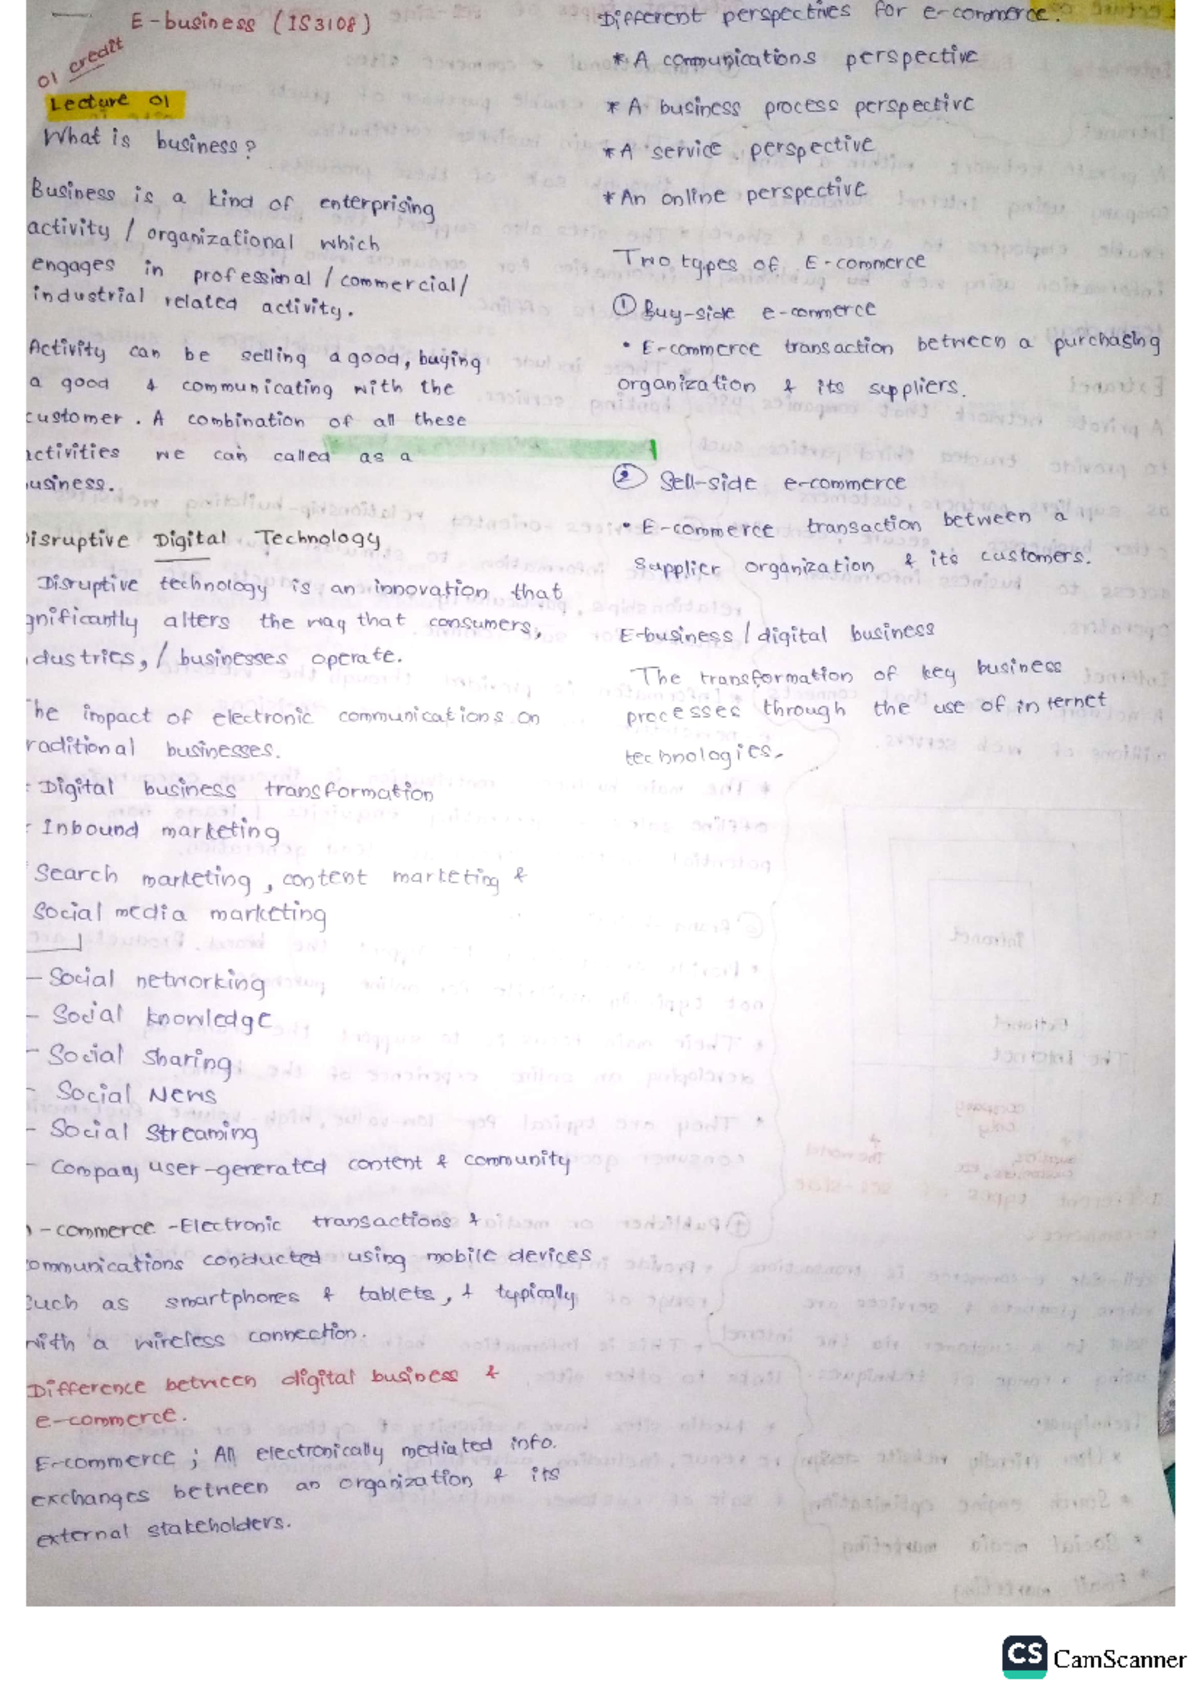 E-business (IS3108)
01 credit
Lecture 01
What is business?
Business is a kind of enterprising
activity / organizational which
engages in professional / commercial/
industrial related activity.
Activity can be selling a good, buying
a good & communicating with the
customer. A combination of all these
activities we can called as a
usiness.
isruptive Digital Technology
Disruptive technology is an innovation that
gnificantly alters the way that consumers,
dustries, / businesses operate.
he impact of electronic communications on
raditional businesses.
- Digital business transformation
- Inbound marketing
Search marketing, content marketing &
Social media marketing
- Social networking
- Social knowledge
- Social sharing
- Social News
- Social Streaming
- Company user-generated content & community
-commerce - Electronic transactions &
ommunications conducted using mobile devices
such as smartphones & tablets, & typically
with a wireless connection.
Difference between digital business &
e-commerce.
E-commerce ; All electronically mediated info.
exchanges between an organization & its
external stakeholders.
Different perspectives for e-commerce.
* A communications perspective
* A business process perspective
* A service perspective
* An online perspective
Two types of E-commerce
① Buy-side e-commerce
• E-commerce transaction between a purchasing
organization & its suppliers.
② Sell-side e-commerce
• E-commerce transaction between a
supplier organization & its customers.
E-business / digital business
The transformation of key business
processes through the use of internet
technologies.
CS CamScanner